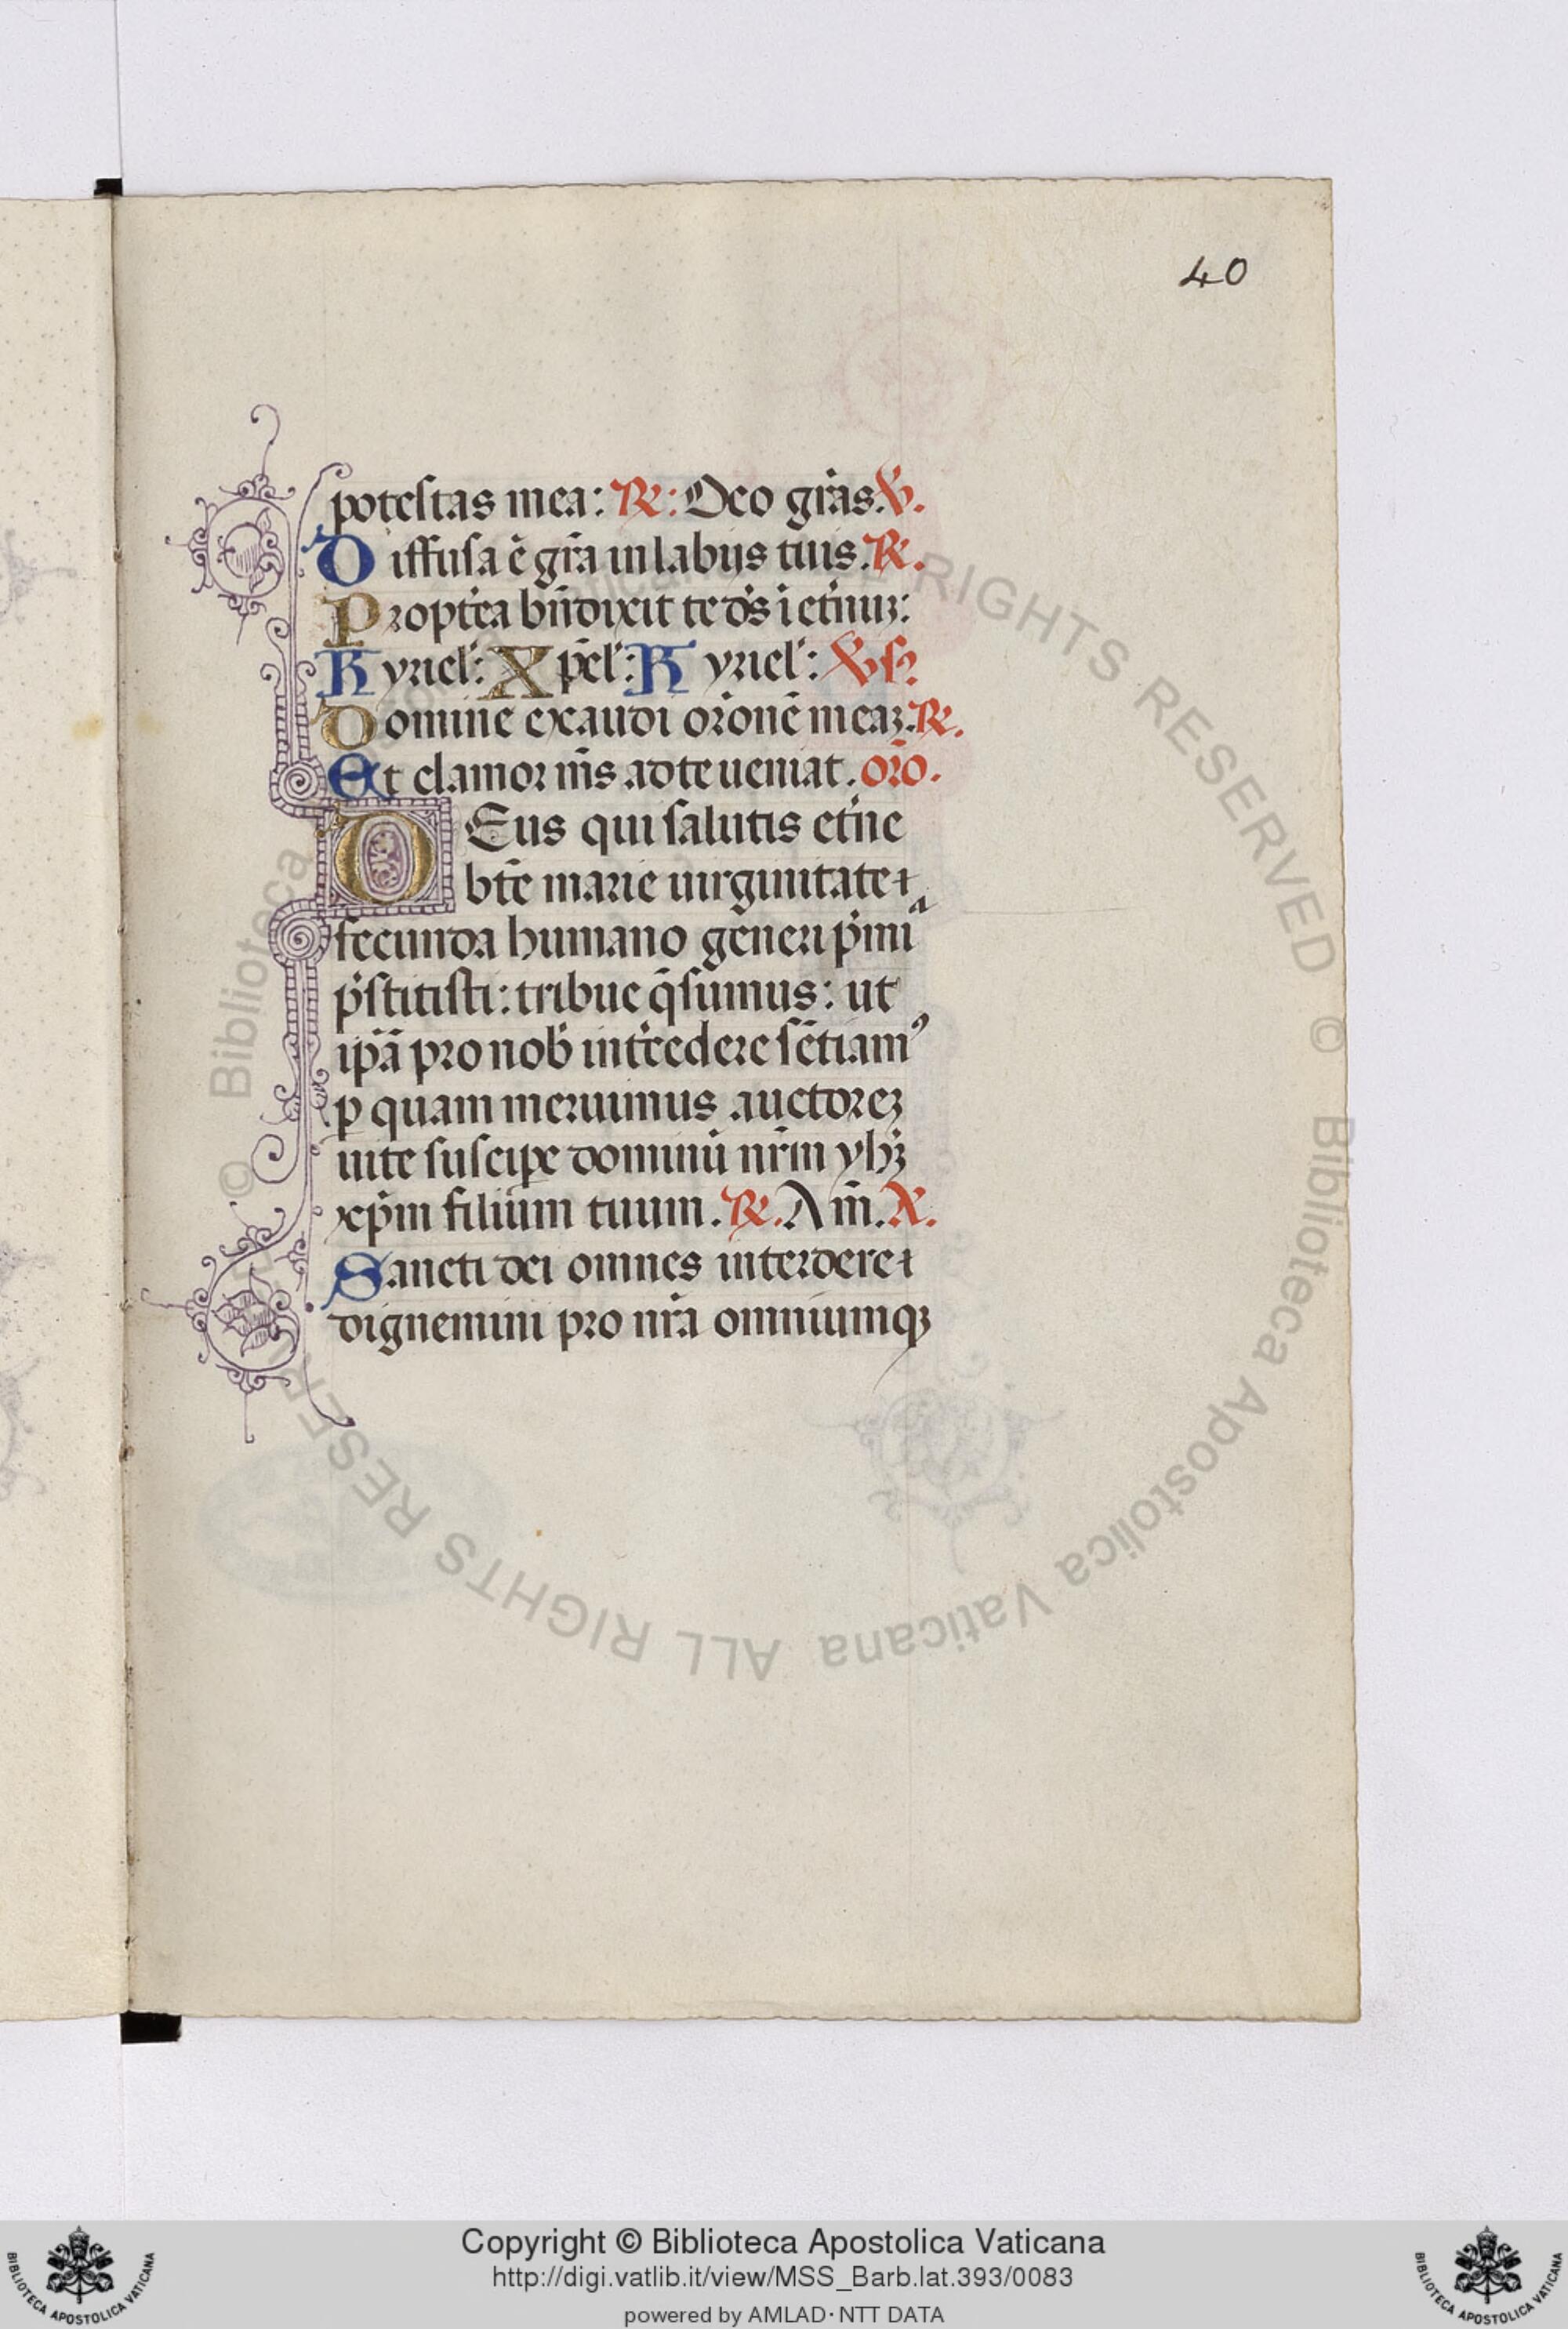 40
potestas mea: ℟: Deo gr̃as. ℣.
Diffusa ẽ gr̃a in labijs tuis. ℟.
Propt̉ea bñdixit te ds̉ ĩ et̉nuꝫ:
Kyriel̉: Xp̃el̉: Kyriel̉: ℣s̉
Domine exaudi or̃onẽ meaꝫ. ℟.
Et clamor m̃s ad te ueniat. or̃o.
DEus qui salutis et̉ne
bt̃e marie uirginitate
fecunda humano generi p̉miᵃ
p̉stitisti: tribue q̃sumus: ut
ip̃ã pro nob̉ int̉cedere sẽtiamꝰ
ꝑ quam meruimus auctoreꝫ
uite suscipe dominũ nr̃m yhꝫ̉
xp̃m filium tuum. ℟. Am̃. A.
Sancti dei omnes interdere
dignemini pro nr̃a omniumqꝫ
© Biblioteca Apostolica Vaticana ALL RIGHTS RESERVED
Copyright © Biblioteca Apostolica Vaticana
http://digi.vatlib.it/view/MSS_Barb.lat.393/0083
powered by AMLAD·NTT DATA
BIBLIOTECA APOSTOLICA VATICANA
BIBLIOTECA APOSTOLICA VATICANA